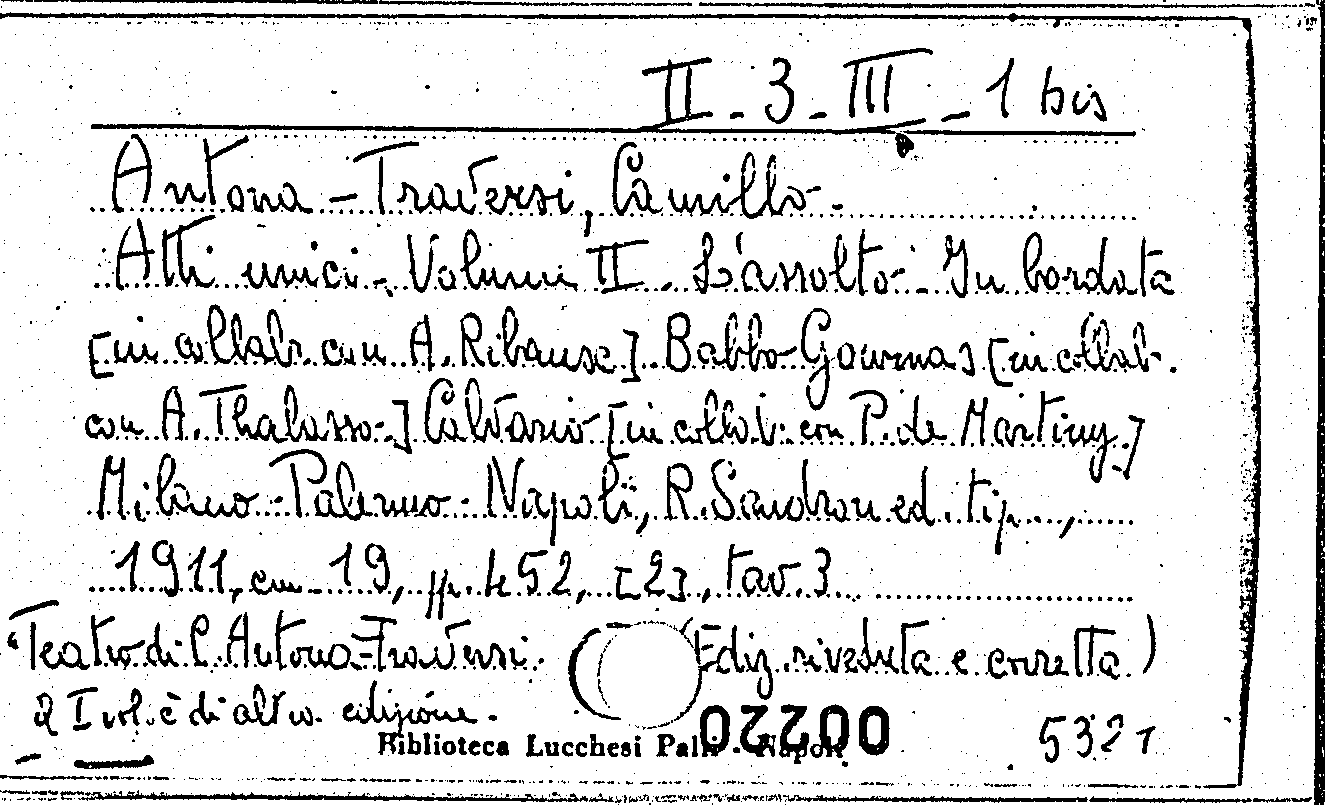 II - 3 - III - 1 bis
Antona-Traversi, Camillo.
Atti unici. Volume II. L'assolto. In bordata
[in collab. con A. Ribaux]. Babbo Gournas [in collab.
con A. Thalasso.] Calvario [in collab. con P. de Martiny.]
Milano-Palermo-Napoli, R. Sandron ed. tip.,
1911, cm. 19, pp. 452, [2], tav. 3
"Teatro di C. Antona-Traversi. (Ediz. riveduta e corretta)
Il I vol. è di altra edizione.
Biblioteca Lucchesi Palli - Napoli
00220
5321